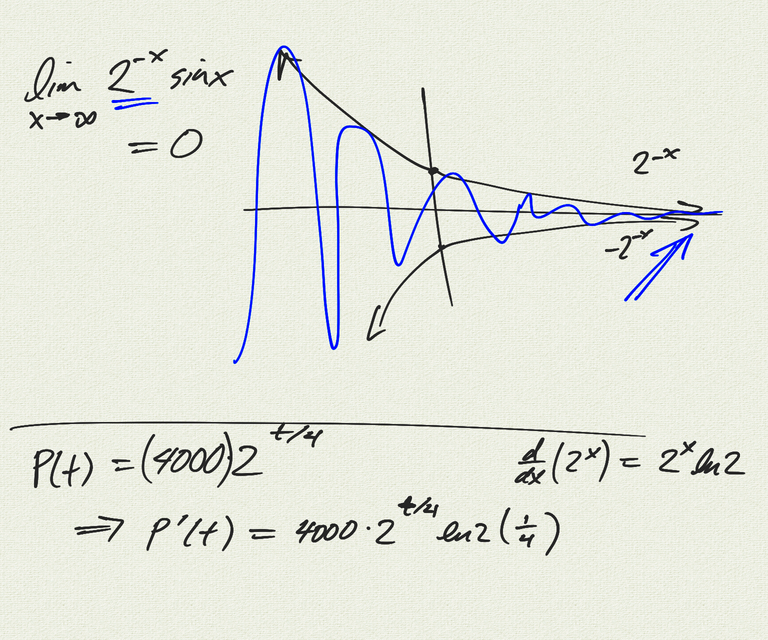 lim 2^-x sinx
x→∞
= 0
2^-x
-2^-x
P(t) = (4000)2^t/4
d/dx (2^x) = 2^x ln2
⇒ P'(t) = 4000·2^t/4 ln2 (1/4)